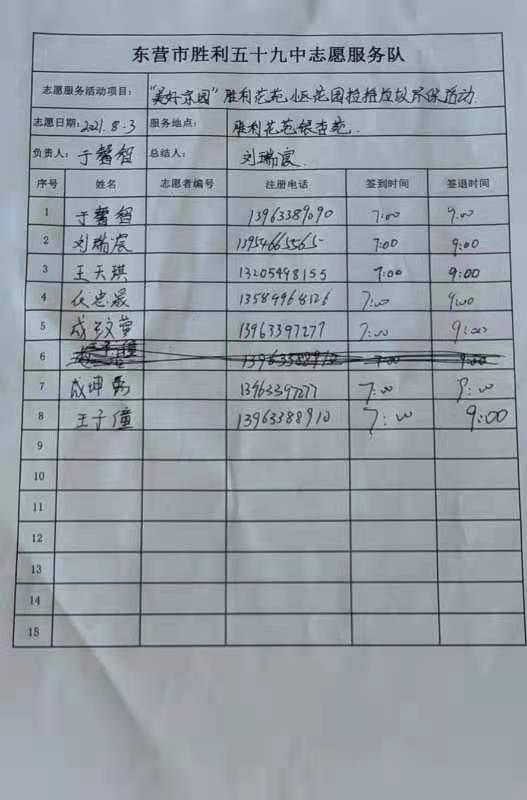 东营市胜利五十九中志愿服务队
志愿服务活动项目： "美好家园"胜利花苑小区花园捡拾垃圾环保活动.
志愿日期：2021.8.3 服务地点： 胜利花苑银杏苑.
负责人：于馨智 总结人： 刘瑞宸
序号 姓名 志愿者编号 注册电话 签到时间 签退时间
1 于馨智 13963389090 7:00 9:00
2 刘瑞宸 13954665565 7:00 9:00
3 王天琪 13205498155 7:00 9:00
4 13589968126 7:00 9:00
5 成文萱 13963397277 7:00 9:00
6 13963388910 7:00 9:00
7 成坤 13963397277 7:00 9:00
8 王子僮 13963388910 7:00 9:00
9
10
11
12
13
14
15